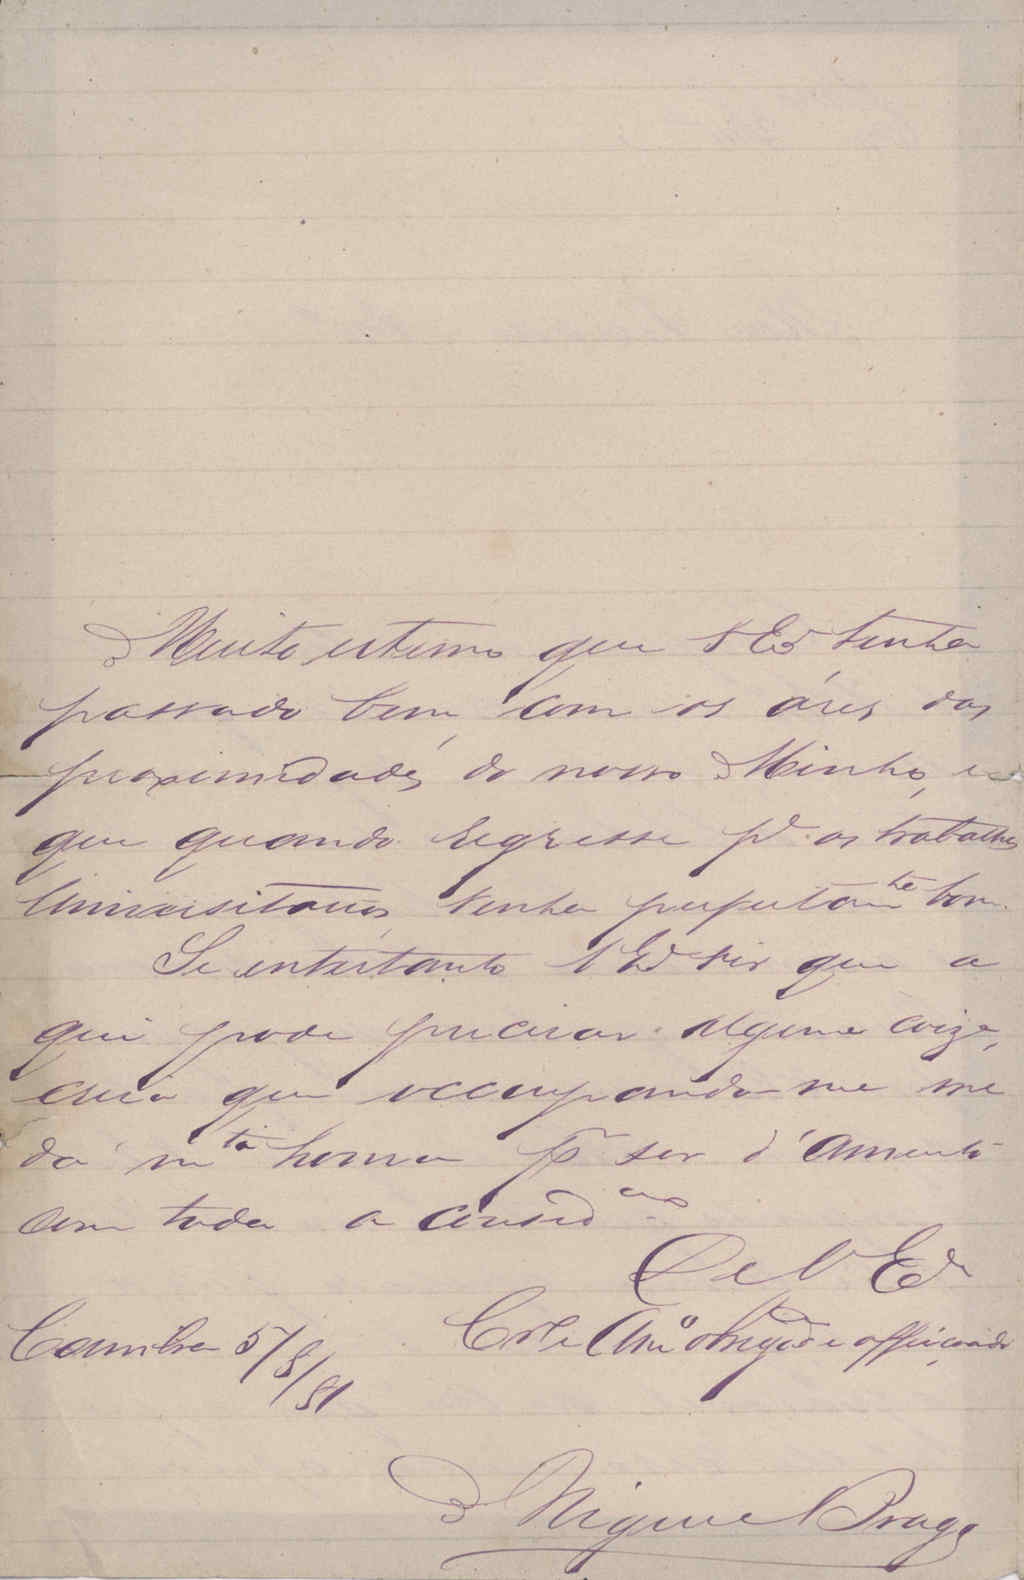 Muito estimo que V Exª tenha
passado bem, com os áres das
proximidades do nosso Minho, e
que quando regresse pª os trabalhos
Universitarios, venha perfeitamte bom.
Se entretanto V Exª vir que a
qui pode precisar alguma coiza,
creia que occupando-me me
dá mta honra pr ser d'
com toda a considão
De V Exª
Coimbra 5/8/81 Cdº Amº obrigdº e affeiçoado
Miguel Braga